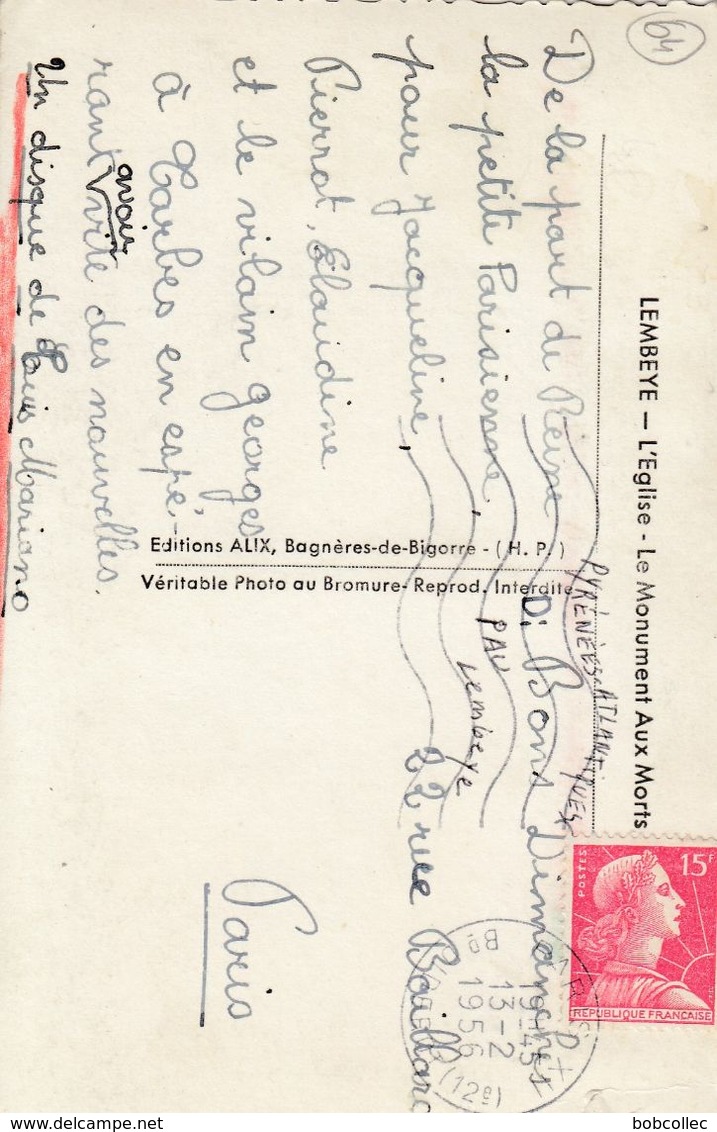 64
LEMBEYE — L'Eglise - Le Monument Aux Morts
De la part de Reine
la petite Parisienne,
pour Jacqueline,
Pierrot, Claudine
et le vilain georges
à Tarbes en espé-
rant avoir vite des nouvelles.
Un disque de Luis Mariano
Editions ALIX, Bagnères-de-Bigorre - (H. P.)
Véritable Photo au Bromure - Reprod. Interdite
PYRÉNÉES-ATLANTIQUES
PAU
Lembeye
Bons Dimanches
22 rue
Paris
POSTES
15F
REPUBLIQUE FRANÇAISE
PARIS
19H45
13-2
1956
(12e)
bobcollec